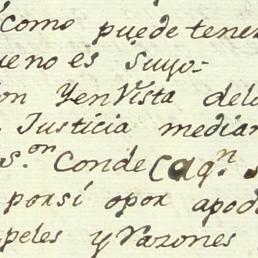 como puede tener
ueno es Suyo=
on Yen Vista del
Justicia median
s.on Conde (aq.n s
porsi opor apod
peles y Razones